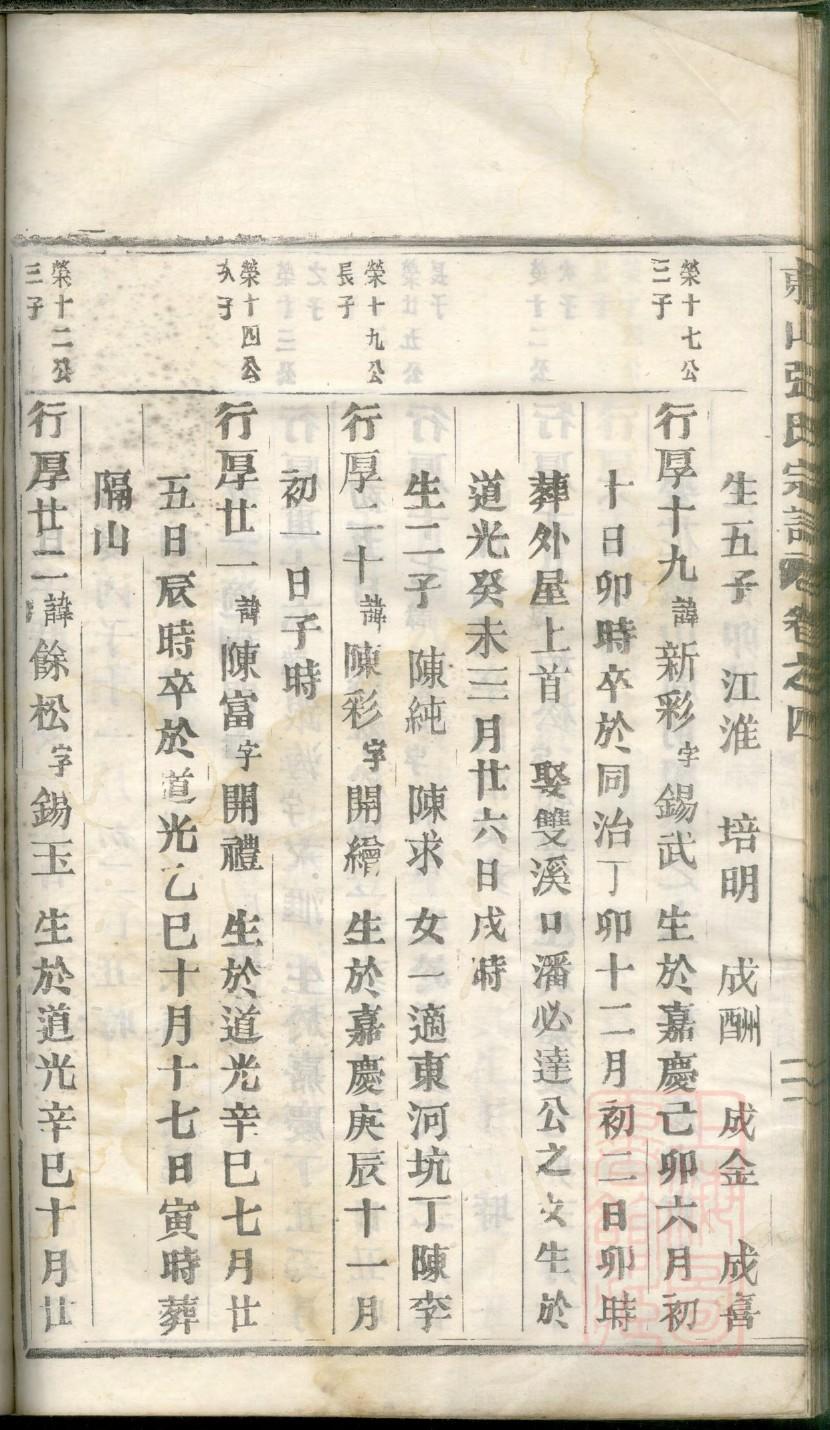 張氏宗譜 卷之四
生五子 江淮 培明 成酬 成金 成喜
榮十七公
三子
行厚十九諱新彩字錫武生於嘉慶己卯六月初
十日卯時卒於同治丁卯十二月初二日卯時
葬外屋上首 娶雙溪口潘必達公之女生於
道光癸未三月廿六日戌時
生二子 陳純 陳求 女一適東河坑丁陳李
榮十九公
長子
行厚二十諱陳彩字開繪生於嘉慶庚辰十一月
初一日子時
榮十四公
次子
行厚廿一諱陳富字開禮 生於道光辛巳七月廿
五日辰時卒於道光乙巳十月十七日寅時葬
隔山
榮十二公
三子
行厚廿二諱餘松字錫玉 生於道光辛巳十月廿